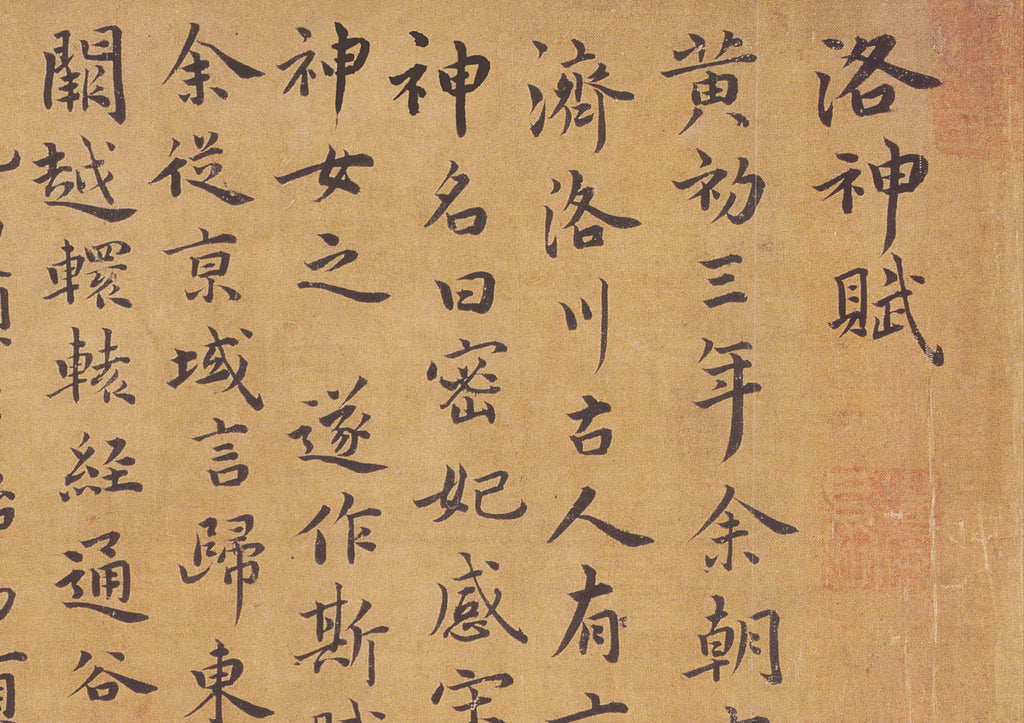 洛神賦
黃初三年余朝
濟洛川古人有
神名曰宓妃感宋
神女之遂作斯賦
余從京域言歸東
闕越轘轅經通谷